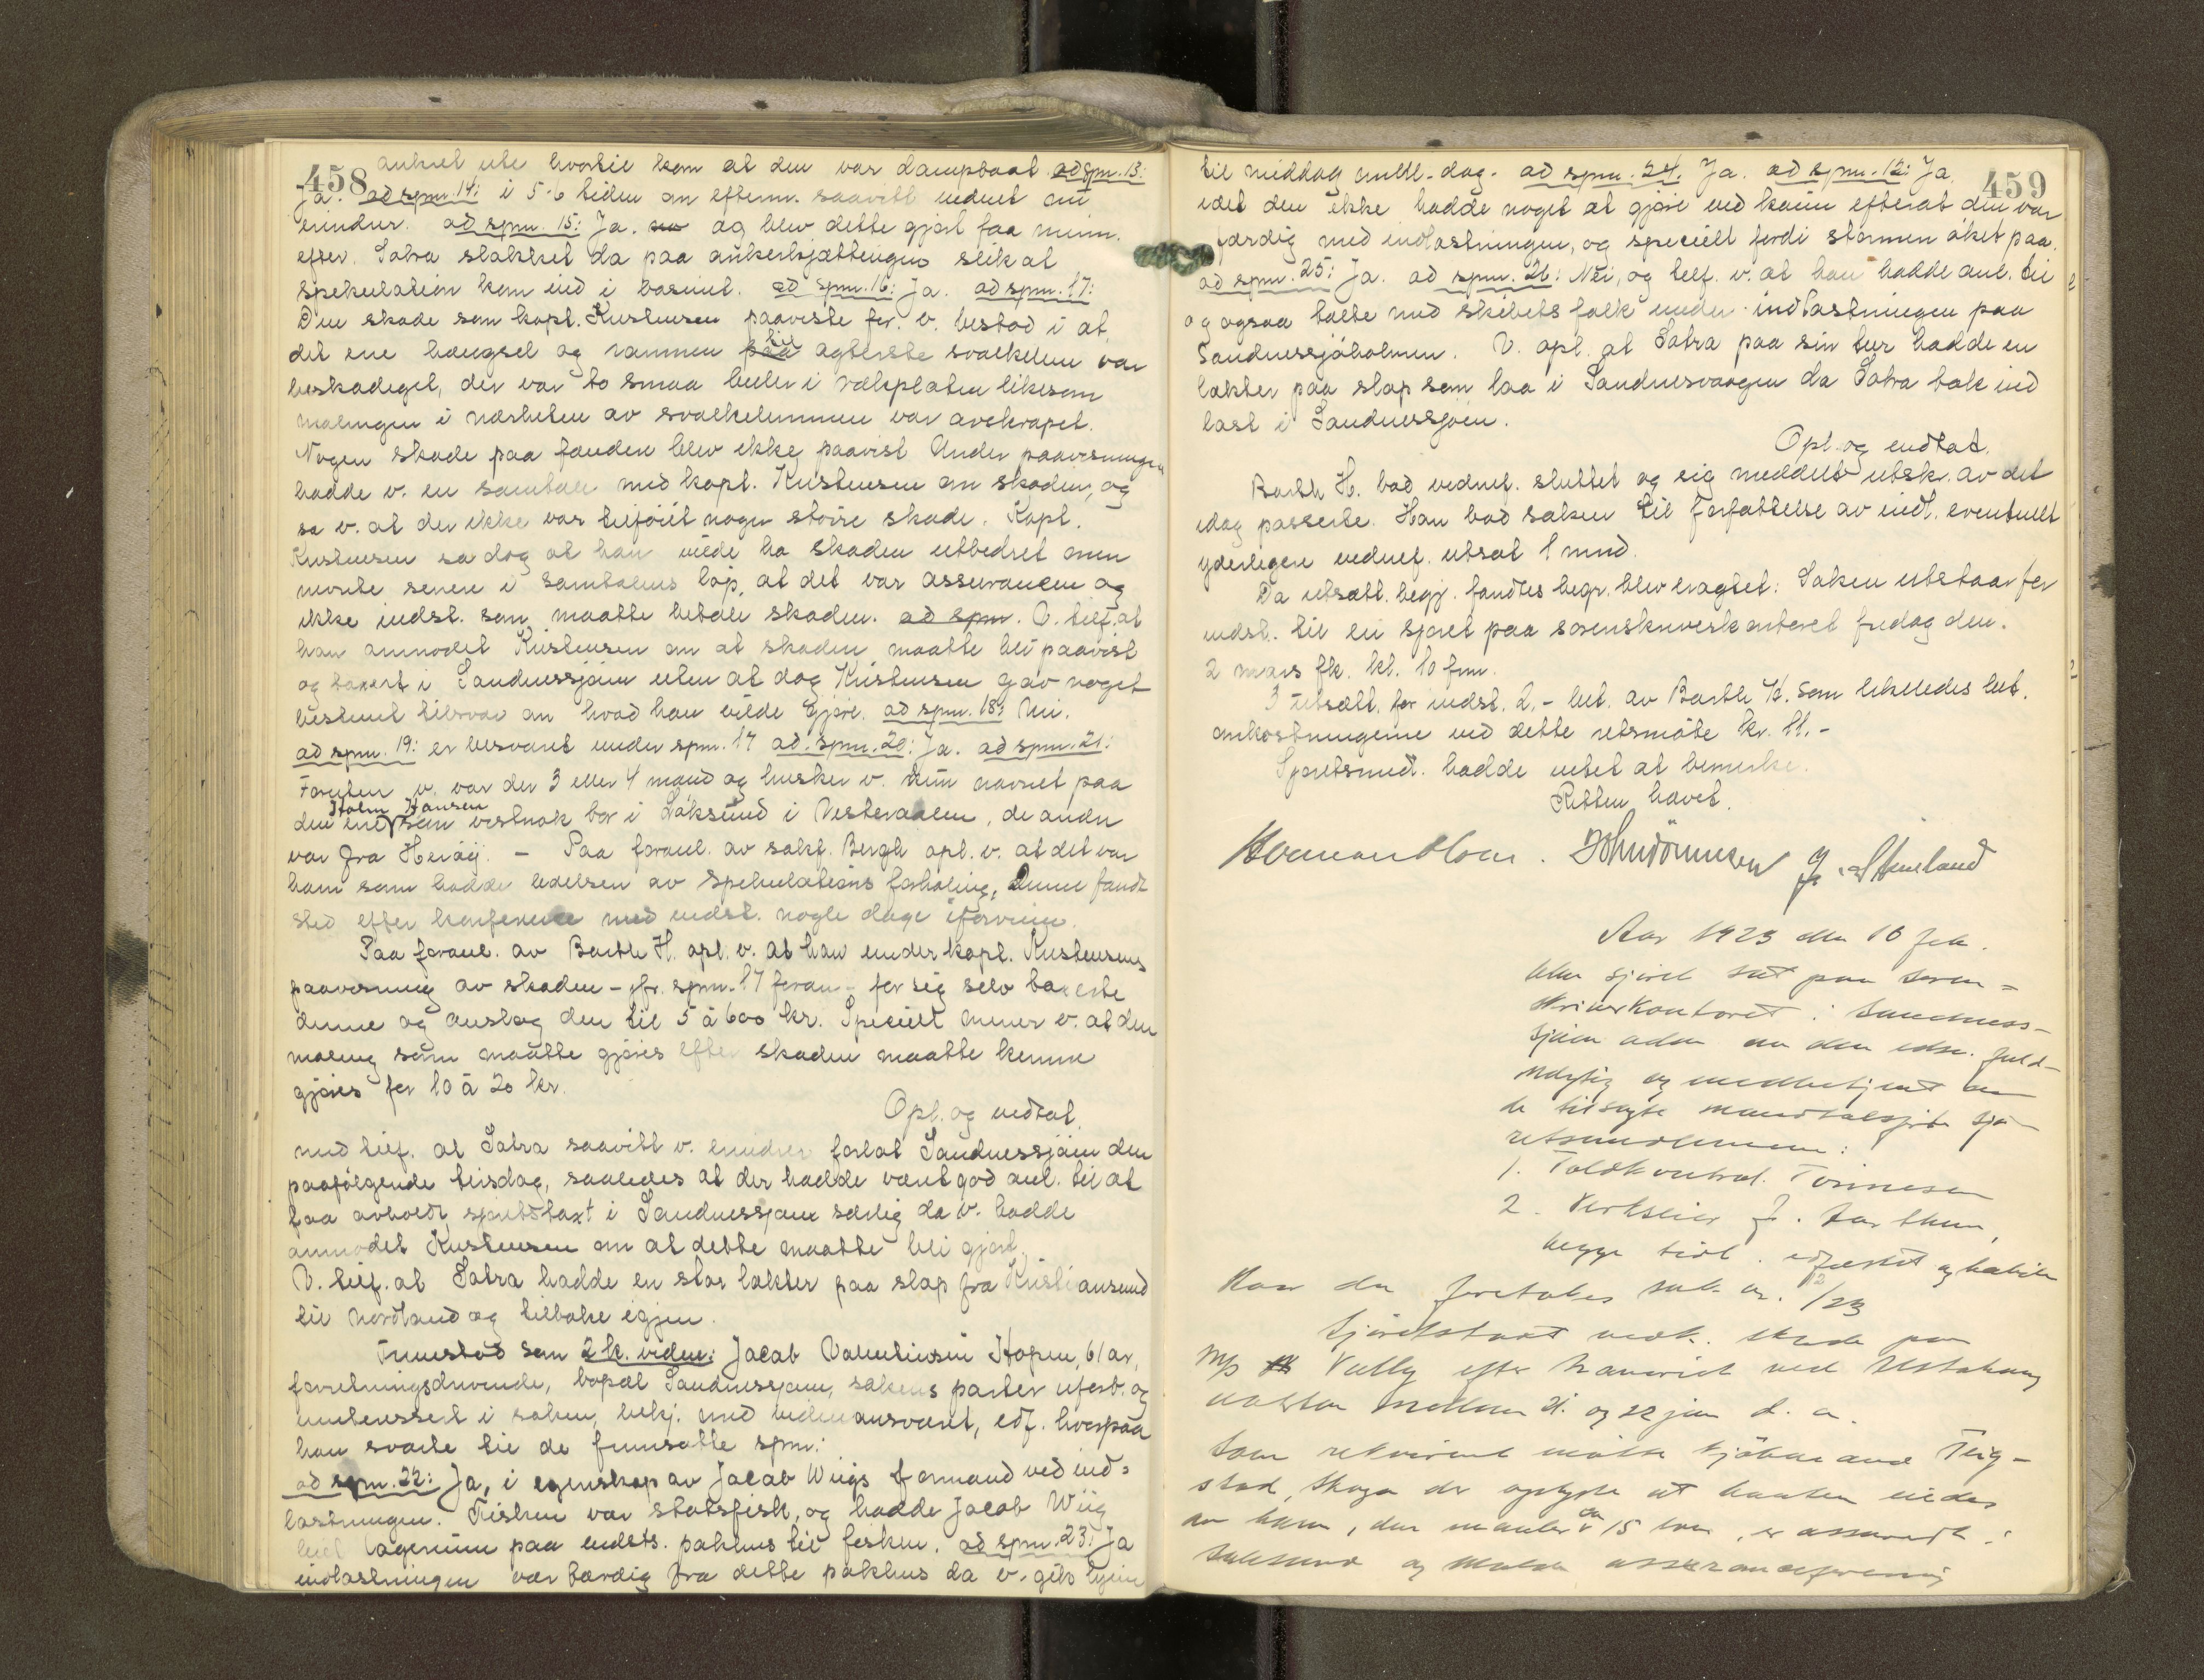 458
ankret ute hvortil kom at den var dampbaat. ad spm. 13:
Ja. ad spm. 14: i 5-6 tiden om efterm. saavitt vidnet nu
erindrer. ad spm. 15: Ja. og blev dette gjort faa minn.
efter. Satra slakket da paa ankerkjættingen slik at
Spekulation kom ind i basinet. ad spm. 16: Ja. ad spm. 17:
Den skade som kapt. Kristensen paaviste for v. bestod i at
det ene hængsel og rammen paa til agterste svalkelem var
beskadiget, der var to smaa buler i rækplaten likesom
malingen i nærheten av svalkelemmen var avskrapet.
Nogen skade paa fenderen blev ikke paavist. Under paavisningen
hadde v. en samtale med kapt. Kristensen om skaden, og
sa v. at der ikke var tilföiet nogen större skade. Kapt.
Kristensen sa dog at han vilde ha skaden utbedret men
nevnte senere i samtalens löp, at det var assurancen og
ikke indst. som maatte betale skaden. ad spm. V. tilf. at
han anmodet Kristensen om at skaden maatte bli paavist
og taxert i Sandnessjöen uten at dog Kristensen gav noget
bestemt tilsvar om hvad han vilde gjöre. ad spm. 18: Nei.
ad spm. 19: er besvaret under spm. 17 ad. spm. 20: Ja. ad spm. 21:
Foruten v. var der 3 eller 4 mand og husker v. kun navnet paa
den ene Holm Hansen som vistnok bor i Laksund i Vesteraalen, de andre
var fra Heröy. – Paa foranl. av sakf. Bergh opl. v. at det var
ham som hadde ledelsen av Spekulations forhaling, denne fandt
sted efter konference med indst. nogle dage iforveien.
Paa foranl. av Barth H. opl. v. at han under kapt. Kristensens
paavisning av skaden – jfr. spm. 17 foran – for sig selv taxerte
denne og anslog den til 5 à 600 kr. Specielt mener v. at den
maling som maatte gjöres efter skaden maatte kunne
gjöres for 10 à 20 kr.
Opl. og vedtat.
med tilf. at Satra saavitt v. erindrer forlot Sandnessjöen den
paafölgende tirsdag, saaledes at der hadde været god anl. til at
faa avholdt sjöretstaxt i Sandnessjöen særlig da v. hadde
anmodet Kristensen om at dette maatte bli gjort.
V. tilf. at Satra hadde en stor lækter paa slæp fra Kristiansund
til Nordland og tilbake igjen.
Fremstod som 2 k. vidne: Jacob Valentinsen Hopen, 61 ar,
forretningsdrivende, bopæl Sandnessjöen, sakens parter uforb. og
uinteressert i saken, bekj. med vidneansvaret, edf. hvorpaa
han svarte til de fremsatte spm.:
ad spm. 22: Ja, i egenskap av Jacob Wiigs formand ved ind=
lastningen. Fisken var statsfisk, og hadde Jacob Wiig
leiet lagerrum paa indsts. pakhus til fisken. ad spm. 23: Ja
indlastningen var færdig fra dette pakhus da v. gik hjem
459
til middag omtl. dag. ad spm. 24. Ja. ad spm. 12: Ja,
idet den ikke hadde noget at gjöre ved kaien efterat den var
færdig med indlastningen, og specielt fordi stormen öket paa.
ad spm. 25: Ja. ad spm. 26: Nei, og tilf. v. at han hadde anl. til
og ogsaa talte med skibets folk under indlastningen paa
Sandnessjöholmen. V. opl. at Satra paa sin tur hadde en
lækter paa slæp som laa i Sandnesvaagen da Satra tok ind
last i Sandnessjöen.
Opl. og vedtat.
Barth H. bad vidnef. sluttet og sig meddelt utsk. av det
idag passerte. Han bad saken til forfattelse av indl. eventuelt
yderligere vidnef. utsat 1 mnd.
Da utsætt. begj. fandtes begr. blev eragtet: Saken utstaar for
indst. til en sjöret paa sorenskriverkontoret fredag den
2 mars fk. kl. 10 fm.
3 utsætt. for indst. 2,- bet. av Barth H. som likeledes bet.
omkostningerne ved dette retsmöte kr. 11.-
Sjöretsmedl. hadde intet at bemerke.
Retten hævet.
Herman Horn. John Tönnesen J. Steinland
Aar 1923 den 10 feb.
blev sjöret sat paa soren=
skriverkontoret i Sandnes-
sjöen adm. av den edsv. fuld-
mægtig og medbetjent av
de tilsagte mandtalsfört sjö-
retsmedlemmer:
1. Toldkontrol. Tönnesen
2. Verkseier J.
begge tidl. edfæstet og habile
Hvor da foretokes sak nr. 12/23
Sjöretstaxt vedk. skade paa
M/S Vally efter havarist ved
natten mellem 21. og 22 jan d. a.
Som rekvirent mötte kjöbmand Teig-
stad, Skaga der oplyste at baaten eiedes
av ham, den maaler ca 15 ton, er assurert i
og Molde assuranceforening